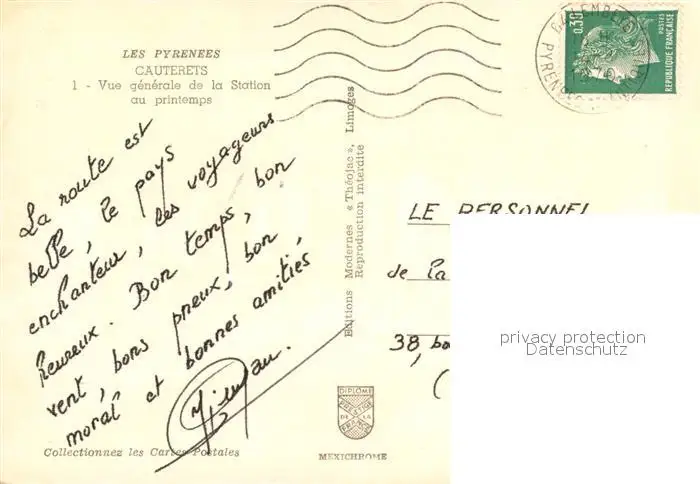 LES PYRENEES
CAUTERETS
1 - Vue générale de la Station
au printemps
La route est
belle, le pays
enchanteur, les voyageurs
heureux. Bon temps, bon
vent, bons pneux, bon
moral et bonnes amitiés
Collectionnez les Cartes Postales
Editions Modernes « Théojac », Limoges
Reproduction interdite
DIPLOME
PRESTIGE
DE LA
FRANCE
MEXICHROME
0,30
POSTES
REPUBLIQUE FRANÇAISE
LE PERSONNEL
de la
38
(
privacy protection
Datenschutz